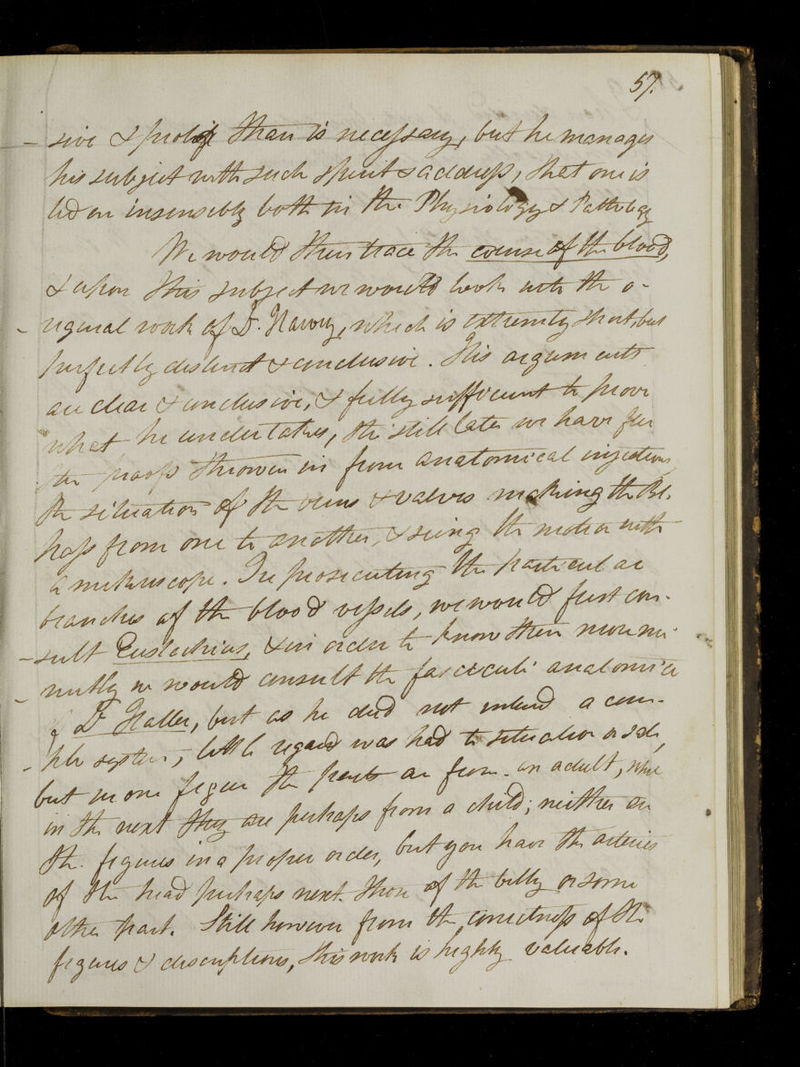 57.
sive & prolix than is necessary, but he manages
his subject with such spirit & address, that one is
led on insensibly both in the Physiology & Pathology
We would then trace the course of the blood,
& upon this subject we would look into the o-
riginal work of Dr. Harvey, which is extremely short, but
perfectly distinct & conclusive. His arguments
are clear & conclusive, & fully sufficient to prove
what he undertakes, tho' still later we have
the proofs thrown in from anatomical injections,
the situation of the veins & valves making the Bl.
pass from one to another, & seing the motion with
a microscope. In prosecuting the particular
branches of the blood vessels, we would first con-
sult Eustachius, & in order to know them more mi-
nutely we would consult the fasciculi anatomici
of Dr Haller, but as he did not intend a com-
plete system, little regard was had to situation or side,
but in one figure the parts are from an adult, while
in the next they are perhaps from a child; neither are
the figures in a proper order, but you have the arteries
of the head perhaps next those of the belly or some
other part. Still however from the correctness of the
figures & descriptions, this work is highly valuable.